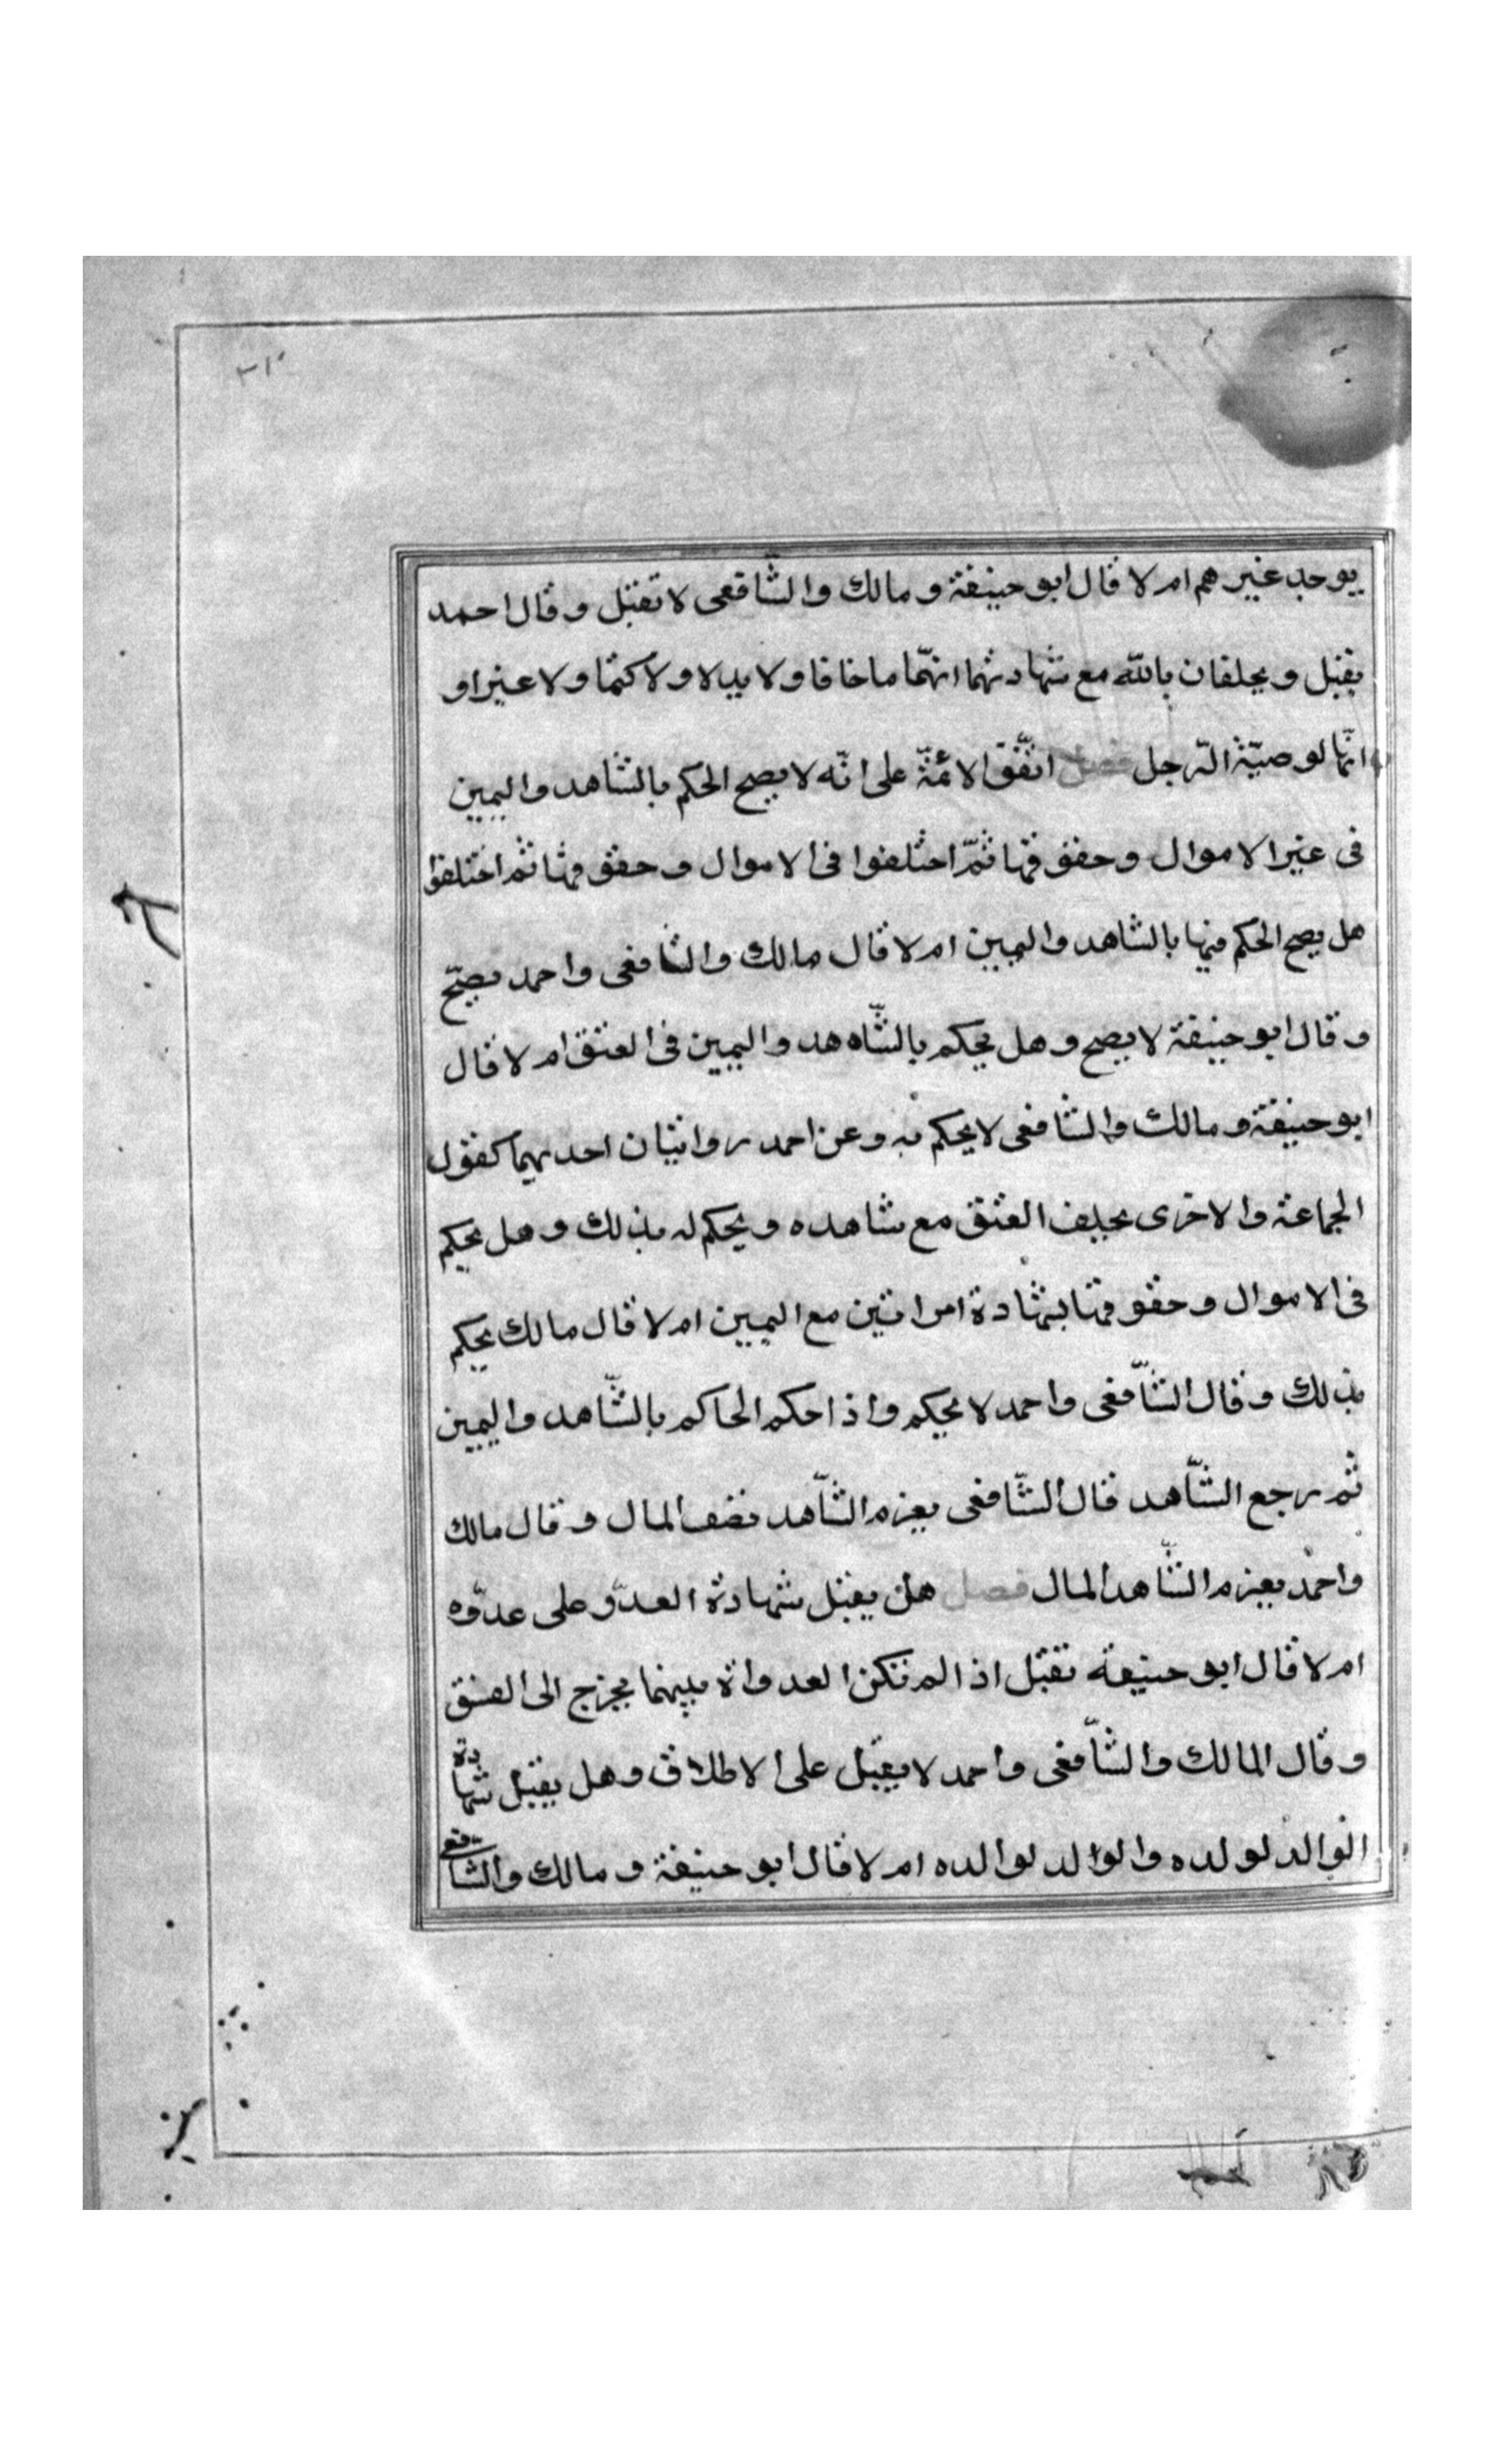 يوجد غيرهم ام لا قال ابو حنيفة و مالك والشّافعى لا تقبل و قال احمد
يقبل و يحلفان بالله مع شهادتهما انهّما ما خافا و لا بدلا و لا كتما و لا غيرا و
انّها لوصيّة الرّجل فصل اتّفق الائمّة على انّه لا يصح الحكم بالشّاهد واليمين
فى غير الاموال و حقوقها ثمّ اختلفوا فى الاموال و حقوقها ثم اختلفوا
هل يصح الحكم فيها بالشاهد واليمين ام لا قال مالك والشافعى واحمد يصحّ
و قال ابو حنيفة لا يصح و هل يحكم بالشّاهد واليمين فى العتق ام لا قال
ابو حنيفة و مالك والشافعى لا يحكم به و عن احمد روايتان احديهما كقول
الجماعة والاخرى يحلف العتق مع شاهده و يحكم له بذلك و هل يحكم
فى الاموال و حقوقها بشهادة امراتين مع اليمين ام لا قال مالك يحكم
بذلك و قال الشّافعى واحمد لا يحكم واذا حكم الحاكم بالشّاهد واليمين
ثم رجع الشّاهد قال الشّافعى يغرم الشّاهد نصف المال و قال مالك
واحمد يغرم الشّاهد المال فصل هل يقبل شهادة العدوّ على عدوّه
ام لا قال ابو حنيفة تقبل اذا لم تكن العداوة بينهما يخرج الى الفسق
و قال المالك والشّافعى واحمد لا يقبل على الاطلاق و هل يقبل شهادة
الوالد لولده والوالد لوالده ام لا قال ابو حنيفة و مالك والشافعى